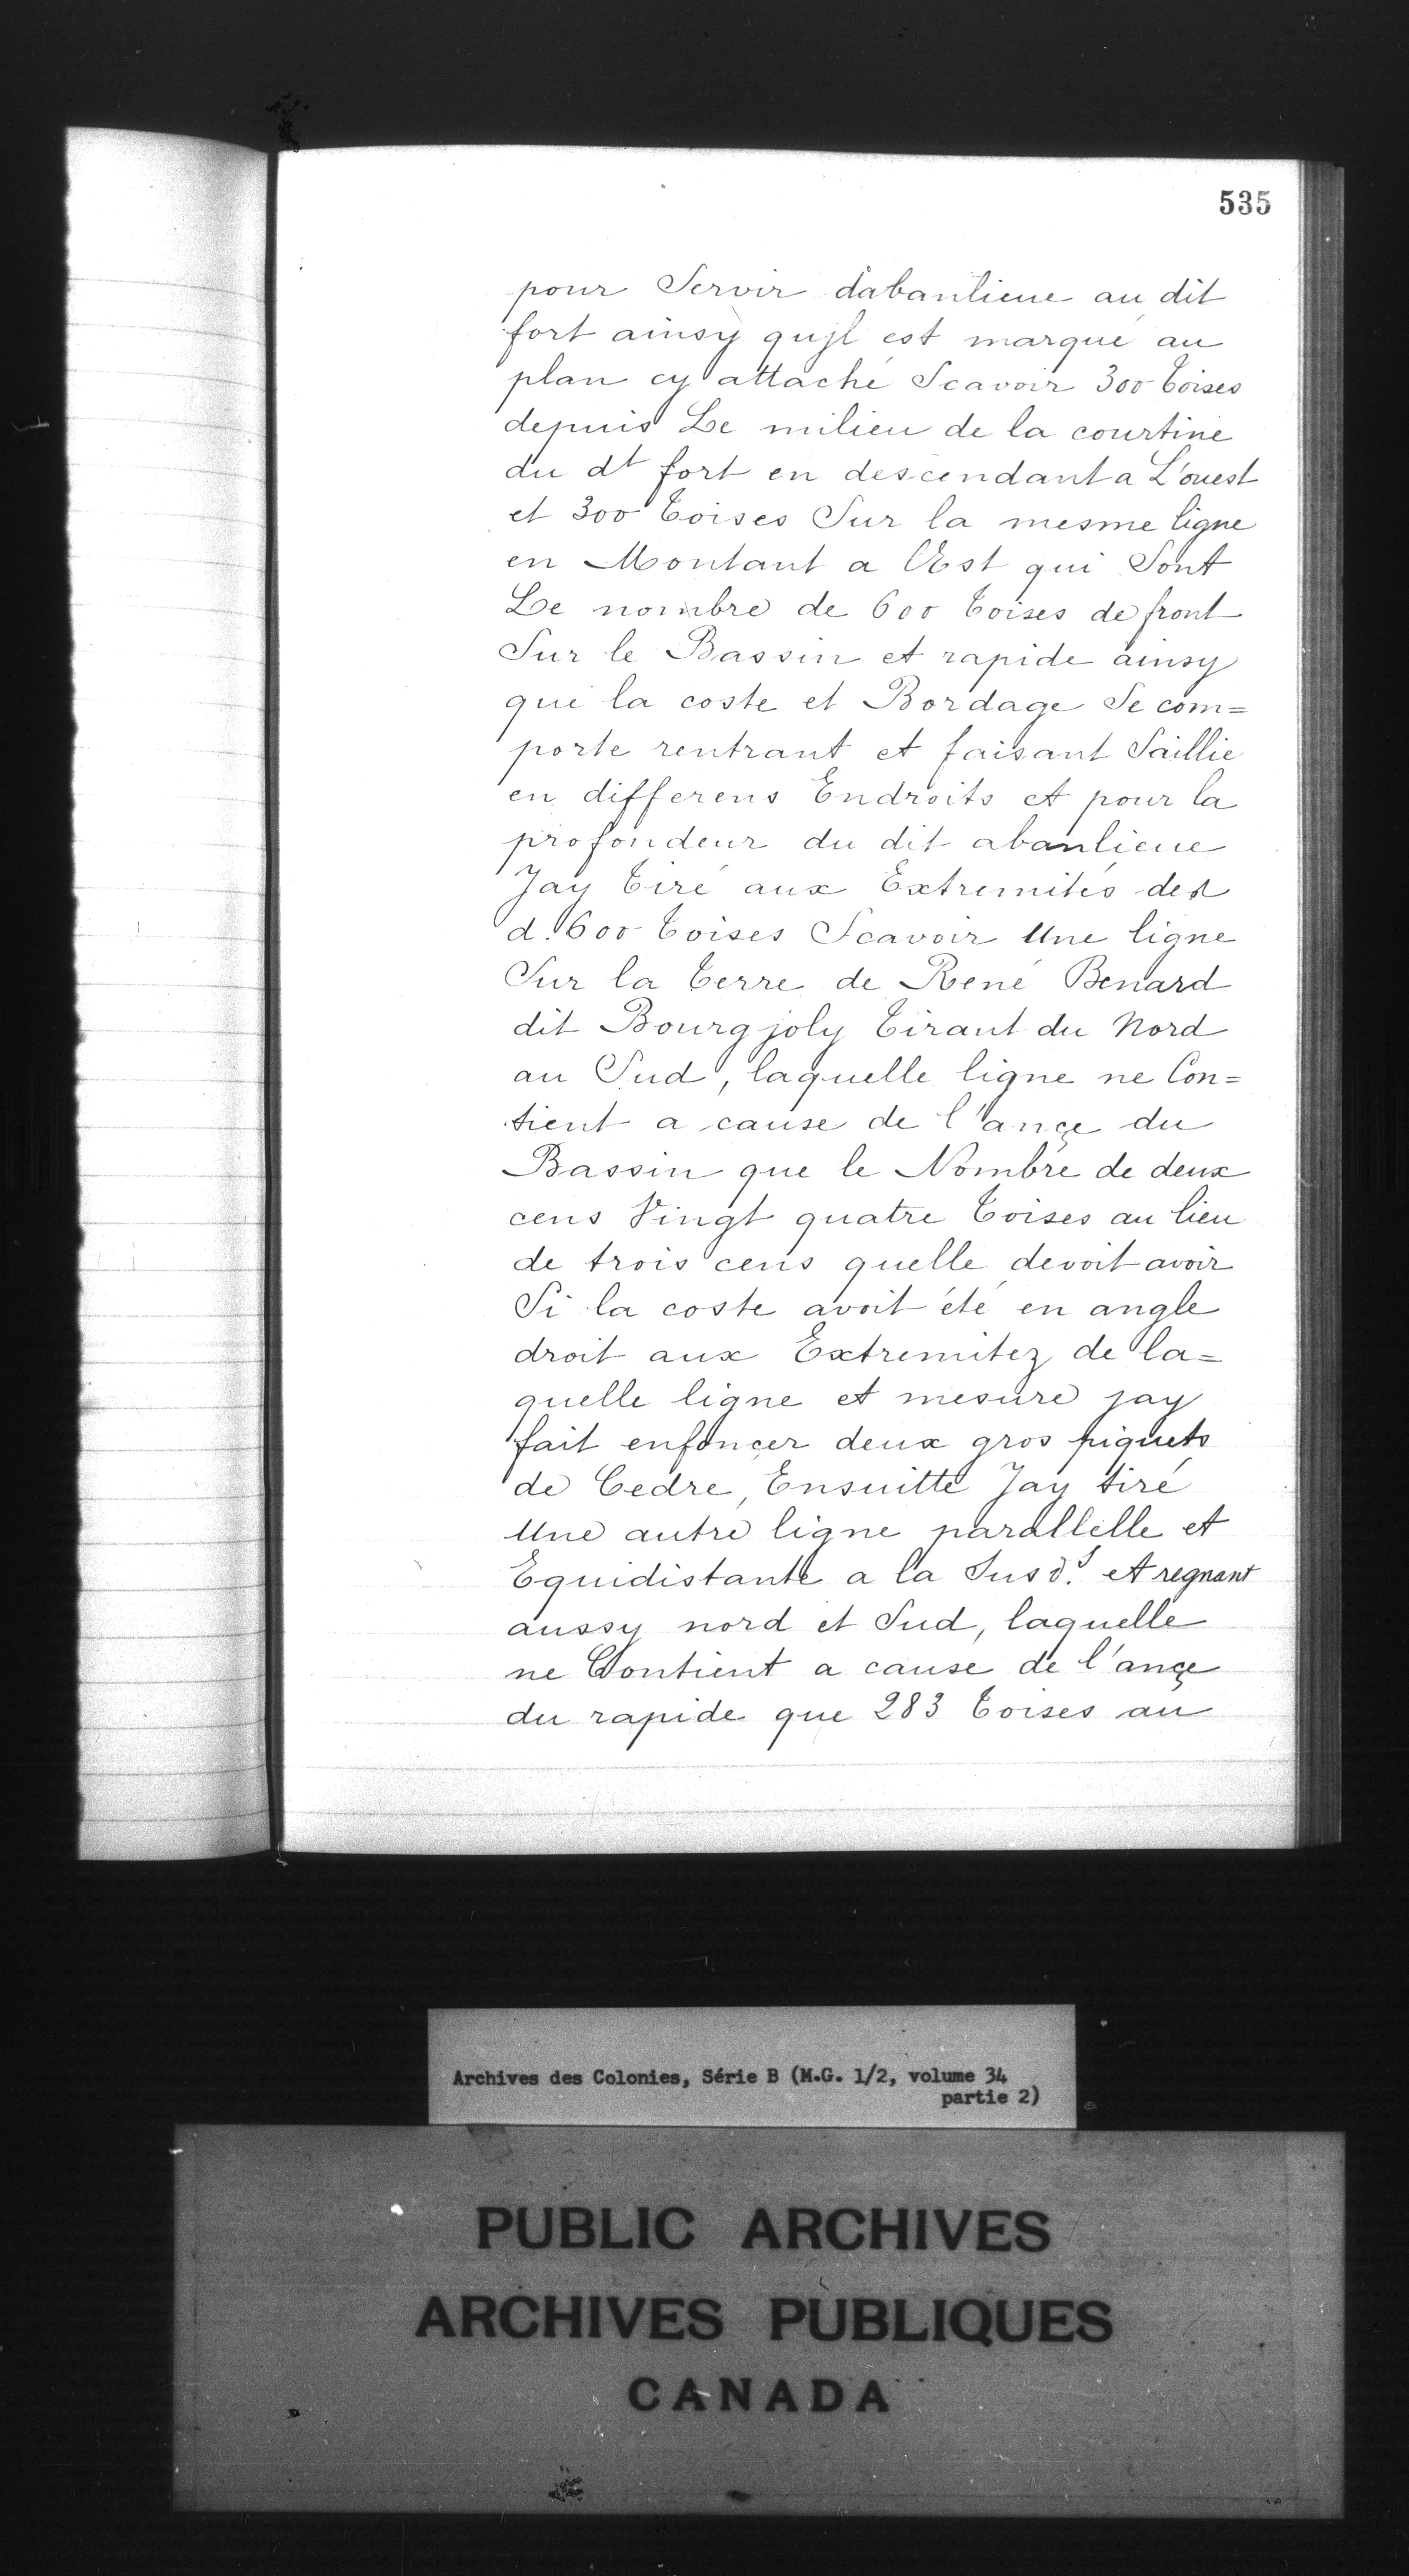 535
pour Servir d'abanlieue au dit
fort ainsy qujl est marqué au
plan cy attaché Scavoir 300 toises
depuis Le milieu de la courtine
du dt fort en descendant a L'ouest
et 300 toises Sur la mesme ligne
en Montant a l'Est qui Sont
Le nombre de 600 toises de front
Sur le Bassin et rapide ainsy
que la coste et Bordage Se com=
porte rentrant et faisant Saillie
en differens Endroits et pour la
profondeur du dit abanlieue
Jay tiré aux Extremités des
d. 600 toises Scavoir Une ligne
Sur la terre de René Benard
dit Bourgjoly tirant du Nord
au Sud, laquelle ligne ne Con=
tient a cause de l'ançe du
Bassin que le Nombre de deux
cens Vingt quatre toises au lieu
de trois cens quelle devoit avoir
Si la coste avoit été en angle
droit aux Extremitez de la=
quelle ligne et mesure jay
fait enfonçer deux gros piquets
de Cedre, Ensuitte Jay tiré
Une autre ligne parallelle et
Equidistante a la Susd. et regnant
aussy nord et Sud, laquelle
ne Contient a cause de l'ançe
du rapide que 283 toises au
Archives des Colonies, Série B (M.G. 1/2, volume 34
partie 2)
PUBLIC ARCHIVES
ARCHIVES PUBLIQUES
CANADA